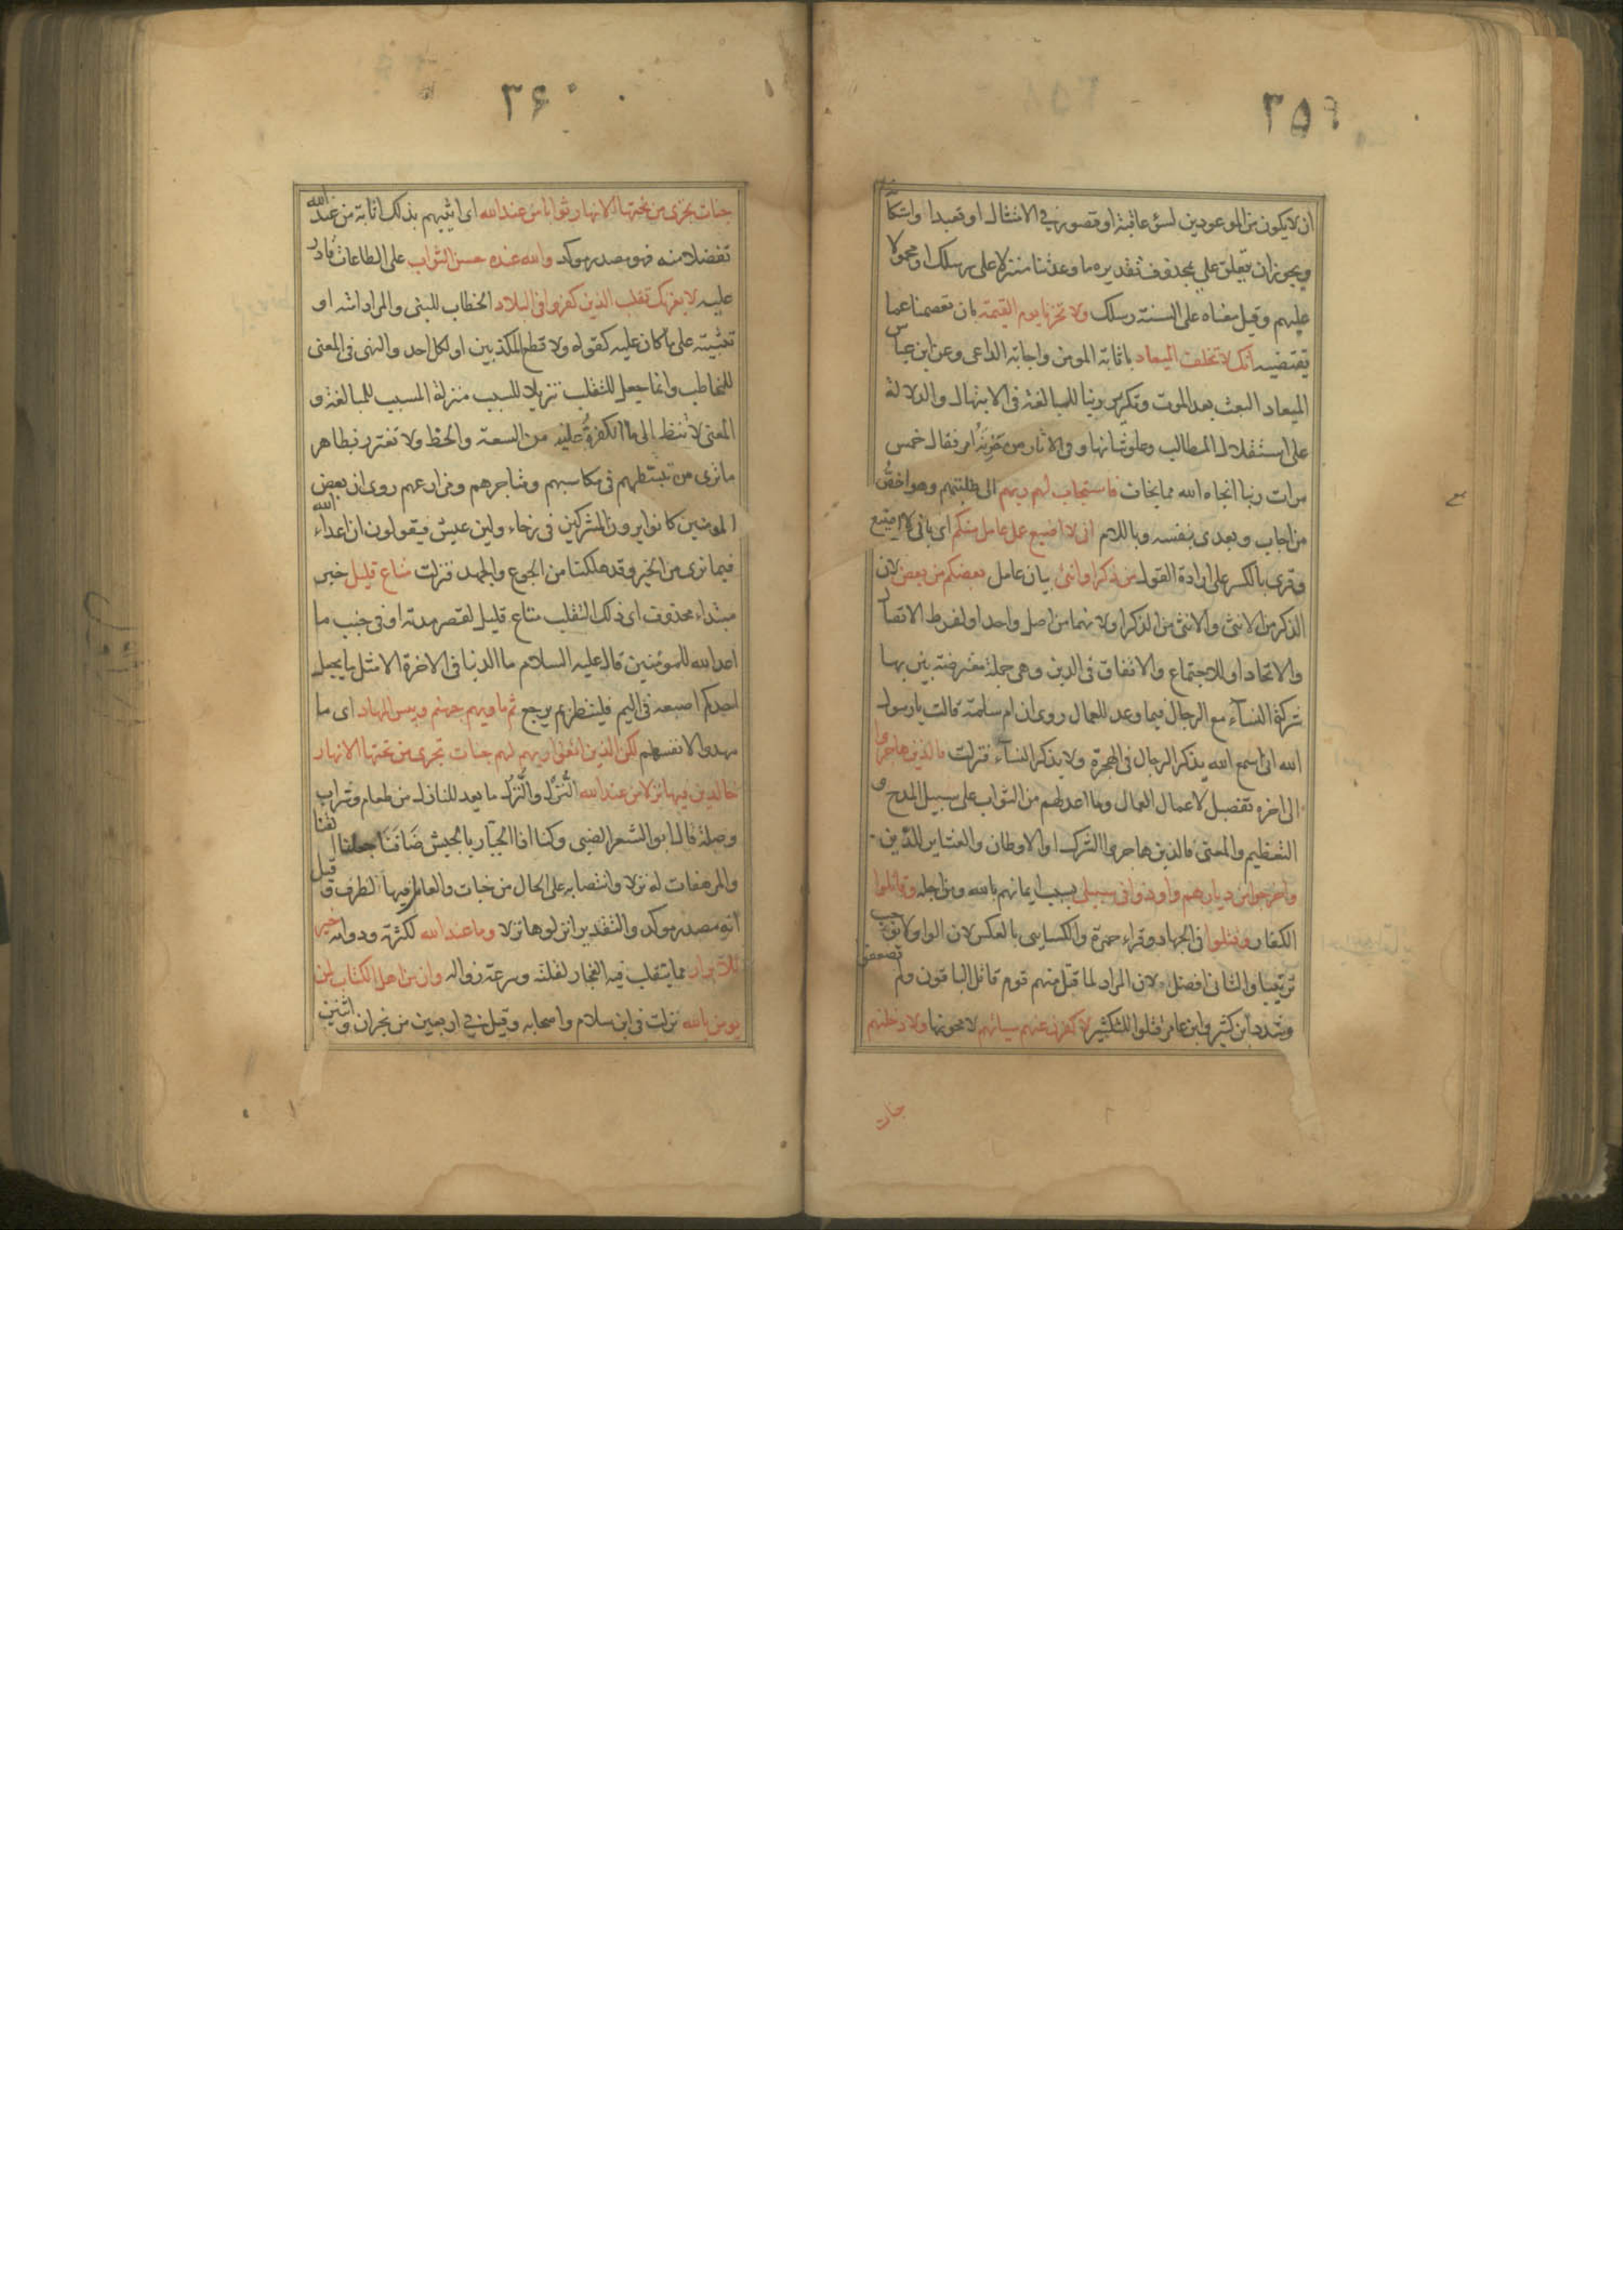 ٣٥٩
ان لا يكون من الموعودين لسوء عاقبة او قصور في الامتثال او تعبدا واستكا
ويجوز ان يتعلق على بمحذوف تقديره ما وعدتنا منزلا على رسلك او محمولا
عليهم وقيل معناه على السنة رسلك ولا تخزنا يوم القيمة بان تعصمنا عما
يقتضيه انك لا تخلف الميعاد باثابة المومن واجابة الداعى وعن ابن عباس
الميعاد البعث بعد الموت وتكرير ربنا للمبالغة فى الابتهال والدلالة
على استقلال المطالب وعلو شانها وفى الاثار من حزبه امر فقال خمس
مرات ربنا انجاه الله مما يخاف فاستجاب لهم ربهم الى طلبتهم وهو اخص
من اجاب ويعدى بنفسه وباللام انى لا اضيع عمل عامل منكم اى بانى لا اضيع
وقرى بالكسر على ارادة القول من ذكر او انثى بيان عامل بعضكم من بعض لان
الذكر من الانثى والانثى من الذكر او لانهما من اصل واحد او لفرط الاتصال
والاتحاد او للاجتماع والاتفاق فى الدين وهى جملة معترضة بين بها
شركة النسآء مع الرجال فيما وعد للعمال روى ان ام سلمة قالت يا رسول
الله انى اسمع الله يذكر الرجال فى الهجرة ولا يذكر النسآء فنزلت فالذين هاجروا
الى اخره تفصيل لاعمال العمال وما اعد لهم من الثواب على سبيل المدح و
التعظيم والمعنى فالذين هاجروا الشرك او الاوطان والعشاير للدين
واخرجوا من ديارهم واوذوا فى سبيلى بسبب ايمانهم بالله ومن اجله وقاتلوا
الكفار وقتلوا فى الجهاد وقراء حمزة والكسايى بالعكس لان الواو لا توجب
ترتيبا والثانى افضل لان المراد لما قتل منهم قوم قاتل الباقون ولم يضعفوا
وشدد ابن كثير وابن عامر قتلوا للتكثير لاكفرن عنهم سيئاتهم لا محونها ولا دخلنهم
جنات
٣۶٠
جنات تجرى من تحتها الانهار ثوابا من عند الله اى اثيبهم بذلك اثابة من عند الله
تفضلا منه فهو مصدر موكد والله عنده حسن الثواب على الطاعات قادر
عليه لا يغرنك تقلب الذين كفروا فى البلاد الخطاب للنبى والمراد امته او
تثبيته على ما كان عليه كقوله ولا تطع المكذبين او لكل احد والنهى فى المعنى
للمخاطب وانما جعل للتقلب تنزيلا للسبب منزلة المسبب للمبالغة و
المعنى لا تنظر الى ما الكفرة عليه من السعة والحظ ولا تغترر بظاهر
ما ترى من تبسطهم فى مكاسبهم ومتاجرهم ومزارعهم روى ان بعض
المومنين كانوا يرون المشركين فى رخاء ولين عيش فيقولون ان اعداء الله
فيما نرى من الخير وقد هلكنا من الجوع والجهد فنزلت متاع قليل خبر
مبتداء محذوف اى ذلك التقلب متاع قليل لقصر مدته او فى جنب ما
اعد الله للمومنين قال عليه السلام ما الدنيا فى الاخرة الا مثل ما يجعل
احدكم اصبعه فى اليم فلينظر بم يرجع ثم ماويهم جهنم وبيس المهاد اى ما
مهدوا لانفسهم لكن الذين اتقوا ربهم لهم جنات تجرى من تحتها الانهار
خالدين فيها نزلا من عند الله النُّزُل والنُّزْل ما يعد للنازل من طعام وشراب
وصلة قال ابو الشعر الضبى وكنا اذا الجبار بالجيش ضَافَنَا جعلنا القنا
والمرهفات له نزلا وانتصابه على الحال من جنات والعامل فيها الظرف وقيل
انه مصدر موكد والتقدير انزلوها نزلا وما عند الله لكثرته ودوامه خير
للابرار مما يتقلب فيه الفجار لقلته وسرعة زواله وان من اهل الكتاب لمن
يومن بالله نزلت فى ابن سلام واصحابه وقيل في اربعين من نجران واثنين